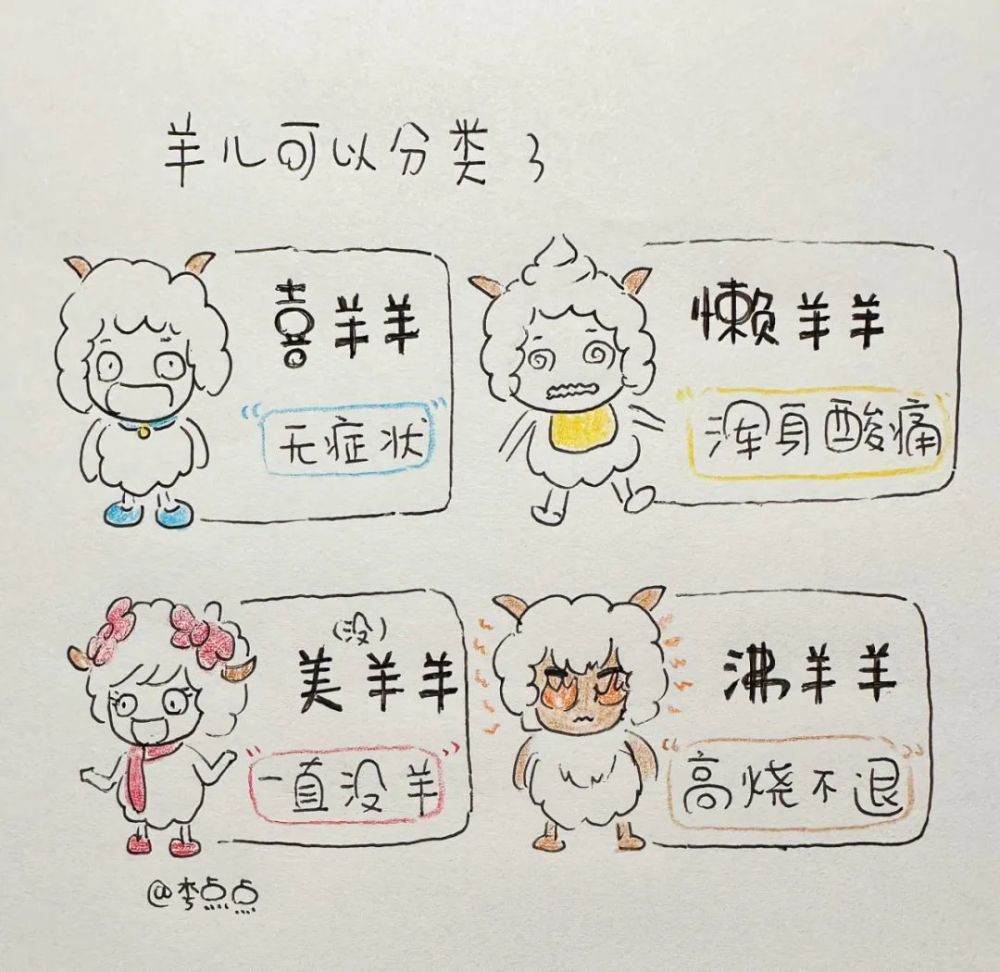 羊儿可以分类了
喜羊羊
"无症状"
懒羊羊
"浑身酸痛"
(没)
美羊羊
"一直没羊"
沸羊羊
"高烧不退"
@李点点